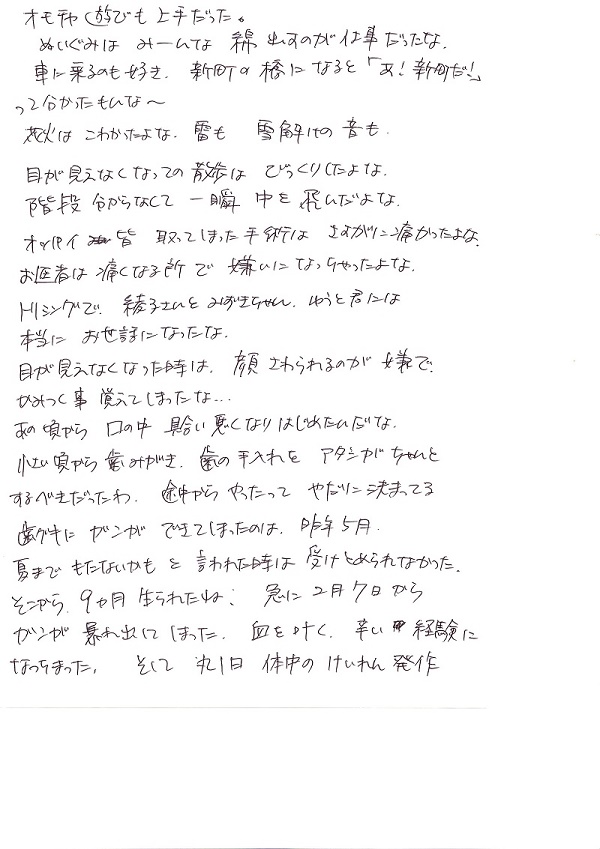 オモチャ遊びも上手だった。
ぬいぐるみは みーんな 綿 出すのが仕事だったな。
車に乗るのも好き. 新町の橋になると「あ！新町だ！」
って分かったもんな〜
花火は こわかったよな. 雷も 雪解けの音も.
目が見えなくなっての散歩は びっくりしたよな.
階段 分からなくて 一瞬 中を飛んだよな.
オッパイ 皆 取ってしまった手術は さすがに痛かったよな.
お医者は痛くなる所で 嫌いになっちゃったよな.
トリミングで. 綾子さんとみずきちゃん. ゆうと君には
本当に お世話になったな.
目が見えなくなった時は. 顔 さわられるのが 嫌で.
かみつく事 覚えてしまったな…
あの頃から 口の中 具合い悪くなりはじめたんだな.
小さい頃から歯みがき. 歯の手入れを アタシがちゃんと
するべきだったわ. 途中から やったって やだりに決まってる
歯グキに ガンが できてしまったのは. 昨年5月.
夏まで もたないかも と 言われた時は 受けとめられなかった.
そこから. 9ヵ月 生られたね. 急に 2月7日から
ガンが 暴れ出してしまった. 血を吐く. 辛い 経験に
なっちまった. そして 丸1日 体中の けいれん 発作